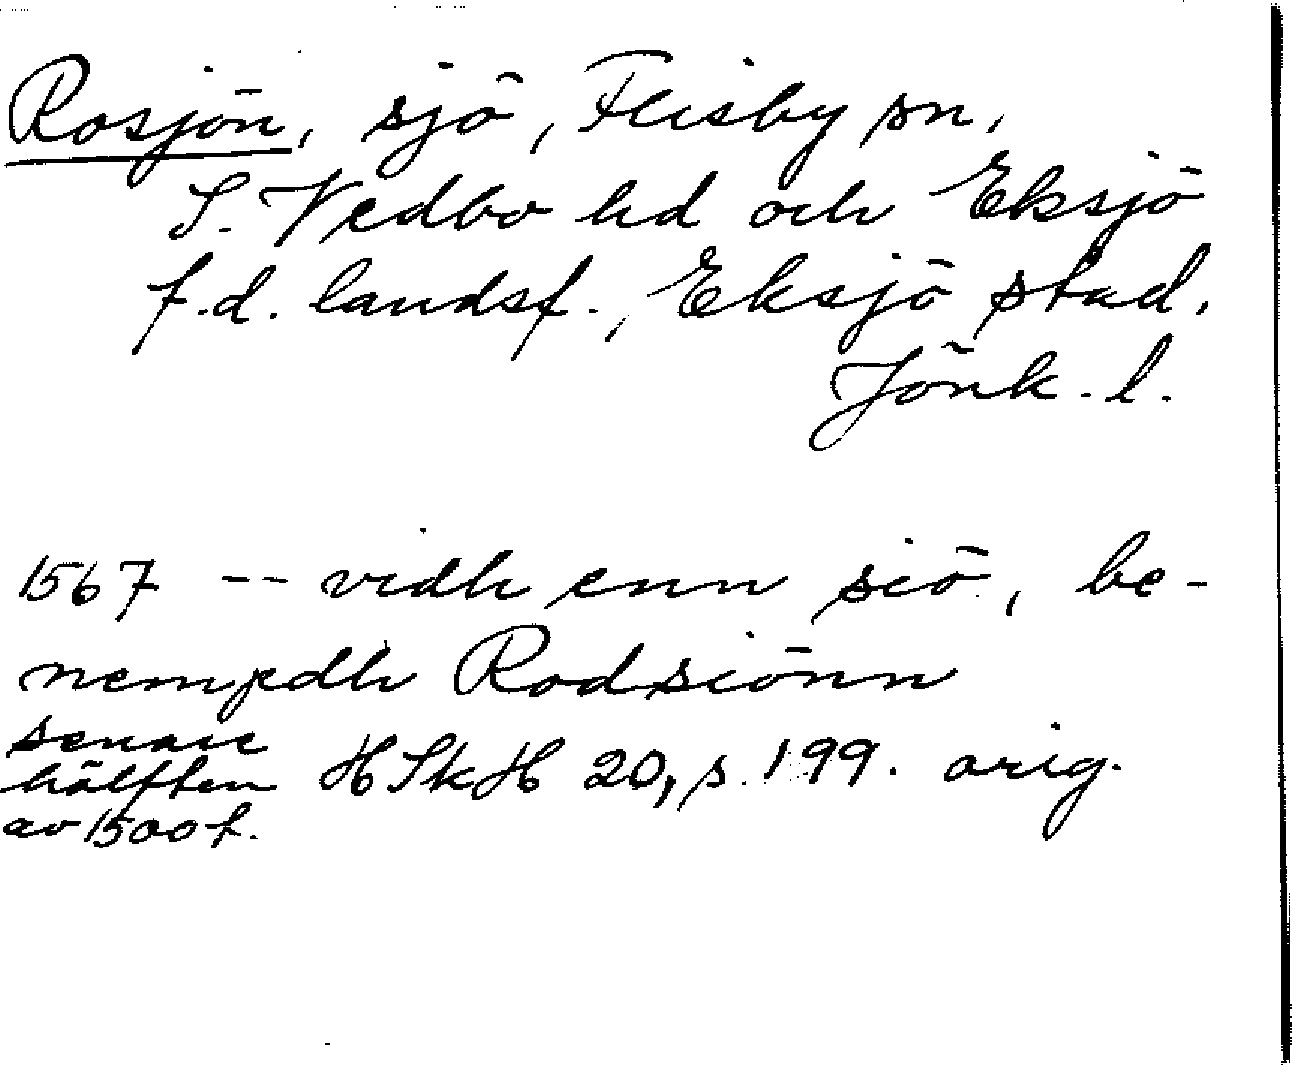 Rosjön, sjö, Flisby sn,
S. Vedbo hd och Eksjö
f.d. landsf., Eksjö stad,
Jönk. l.
1567 -- vidh enn siö, be-
nempdh Rodsiönn
senare
hälften HSkH 20, s. 199. orig.
av 1500 t.